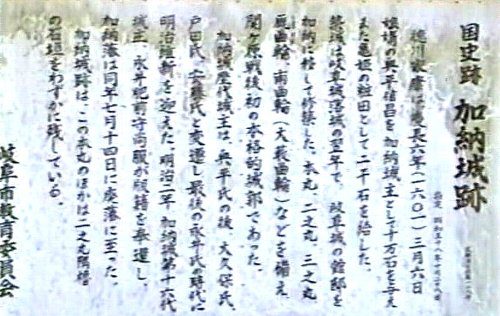 国史跡 加納城跡
指定 昭和五十八年十月二十八日
徳川家康は慶長六年(一六〇一)三月六日
娘婿の奥平信昌を加納城主として十万石を与え
また亀姫の粧田として二千石を給した。
築城は岐阜城落城の翌年で、岐阜城の館邸を
加納に移して修築した。本丸、二之丸、三之丸
厩曲輪、南曲輪(大藪曲輪)などを備え
関ヶ原戦後初の本格的城郭であった。
加納歴代城主は、奥平氏の後、大久保氏、
戸田氏、安藤氏と変遷し最後の永井氏の時代に
明治維新を迎えた。明治二年 加納藩第十六代
城主、永井肥前守尚服が版籍を奉還し、
加納藩は同年七月十四日に廃藩に至った。
加納城跡は、この本丸のほかは二之丸隅櫓
の石垣をわずかに残している。
岐阜市教育委員会